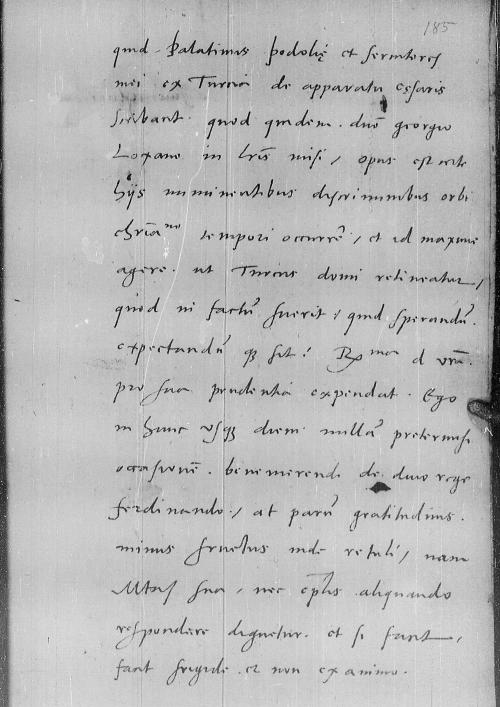 185
quid Palatinus podolię et servitores
mei ex Turcia de apparatu cesaris
scribant. quod quidem dno georgio
Loxano in lris misi, opus est certe
hijs imminentibus discriminibus orbi
chriano tempori occurrere, et id maxime
agere. ut Turcus domi retineatur,
quod ni factū fuerit, quid sperandū.
expectandū q sit? Rma d vra.
pro sua prudentia expendat. Ego
in hunc usq diem nullā pretermisi
occasionē. benemerendi de dno rege
ferdinando, at parū gratitudinis.
minus fructus inde retuli, nam
Mtas sua, nec eplis aliquando
respondere dignetur. et si facit,
facit frigide et non ex animo.